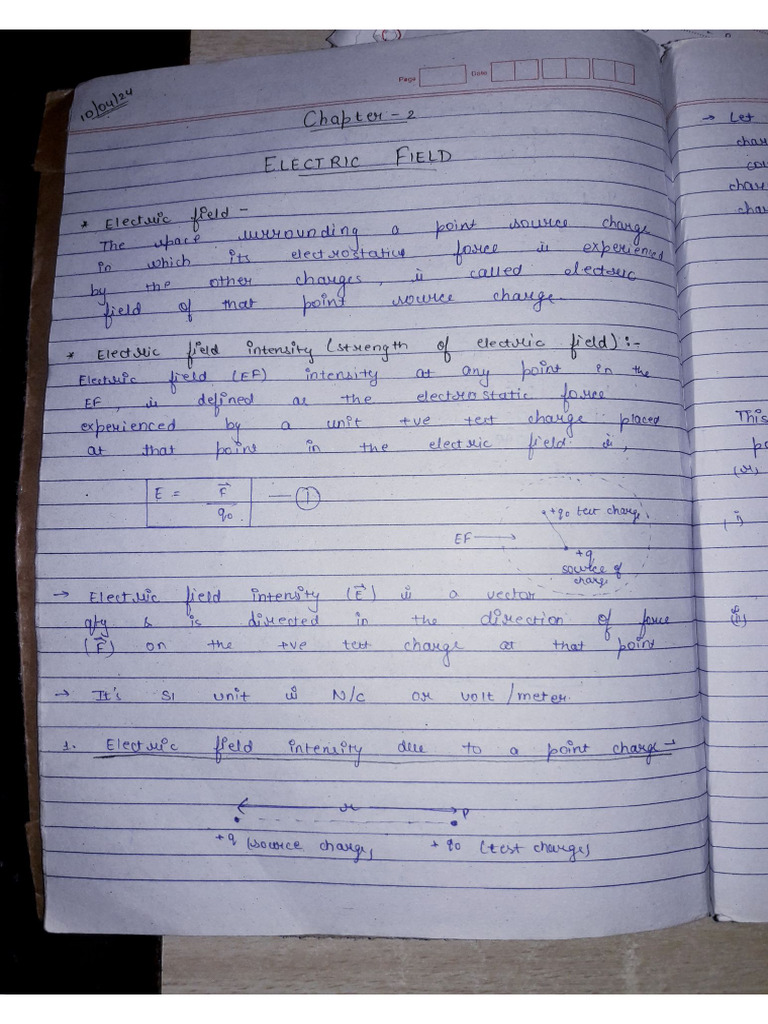 Page Date
10/04/24
Chapter - 2
ELECTRIC FIELD
* Electric field -
The space surrounding a point source charge
in which its electrostatic force is experienced
by the other charges, is called electric
field of that point source charge.
* Electric field intensity (strength of electric field) :-
Electric field (EF) intensity at any point in the
EF, is defined as the electrostatic force
experienced by a unit +ve test charge placed
at that point in the electric field is,
E = F⃗ / q0 — ①
+q0 test charge
EF →
+q
source of
charge
→ Electric field intensity (E⃗) is a vector
qty & is directed in the direction of force
(F⃗) on the +ve test charge at that point
→ It's SI unit is N/C or volt/meter.
1. Electric field intensity due to a point charge →
r
P
+q (source charge) +q0 (test charge)
→ Let
char
char
char
This
(r,
(i)
(ii)